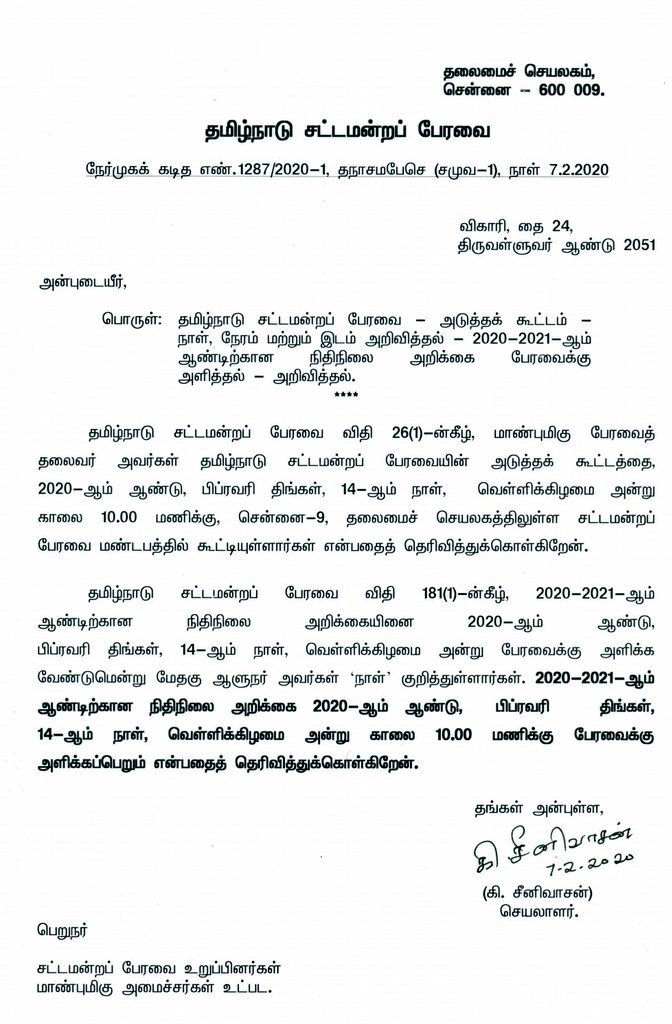 தலைமைச் செயலகம்,
சென்னை – 600 009.
தமிழ்நாடு சட்டமன்றப் பேரவை
நேர்முகக் கடித எண்.1287/2020–1, தநாசமபேசெ (சமுவ–1), நாள் 7.2.2020
விகாரி, தை 24,
திருவள்ளுவர் ஆண்டு 2051
அன்புடையீர்,
பொருள்: தமிழ்நாடு சட்டமன்றப் பேரவை – அடுத்தக் கூட்டம் –
நாள், நேரம் மற்றும் இடம் அறிவித்தல் – 2020–2021–ஆம்
ஆண்டிற்கான நிதிநிலை அறிக்கை பேரவைக்கு
அளித்தல் – அறிவித்தல்.
****
தமிழ்நாடு சட்டமன்றப் பேரவை விதி 26(1)–ன்கீழ், மாண்புமிகு பேரவைத்
தலைவர் அவர்கள் தமிழ்நாடு சட்டமன்றப் பேரவையின் அடுத்தக் கூட்டத்தை,
2020–ஆம் ஆண்டு, பிப்ரவரி திங்கள், 14–ஆம் நாள், வெள்ளிக்கிழமை அன்று
காலை 10.00 மணிக்கு, சென்னை–9, தலைமைச் செயலகத்திலுள்ள சட்டமன்றப்
பேரவை மண்டபத்தில் கூட்டியுள்ளார்கள் என்பதைத் தெரிவித்துக்கொள்கிறேன்.
தமிழ்நாடு சட்டமன்றப் பேரவை விதி 181(1)–ன்கீழ், 2020–2021–ஆம்
ஆண்டிற்கான நிதிநிலை அறிக்கையினை 2020–ஆம் ஆண்டு,
பிப்ரவரி திங்கள், 14–ஆம் நாள், வெள்ளிக்கிழமை அன்று பேரவைக்கு அளிக்க
வேண்டுமென்று மேதகு ஆளுநர் அவர்கள் ‘நாள்’ குறித்துள்ளார்கள். 2020–2021–ஆம்
ஆண்டிற்கான நிதிநிலை அறிக்கை 2020–ஆம் ஆண்டு, பிப்ரவரி திங்கள்,
14–ஆம் நாள், வெள்ளிக்கிழமை அன்று காலை 10.00 மணிக்கு பேரவைக்கு
அளிக்கப்பெறும் என்பதைத் தெரிவித்துக்கொள்கிறேன்.
தங்கள் அன்புள்ள,
கி சீனிவாசன்
7.2.2020
(கி. சீனிவாசன்)
செயலாளர்.
பெறுநர்
சட்டமன்றப் பேரவை உறுப்பினர்கள்
மாண்புமிகு அமைச்சர்கள் உட்பட.